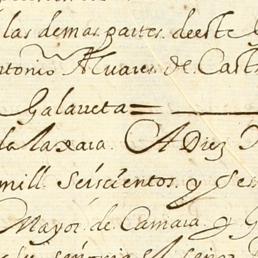 las demas partes. deeste
Antonio Aluares. de Cast
Galarreta=
la laxara. A Diez
mill. seiscientos. y ses
Mayor. de Camara. y G